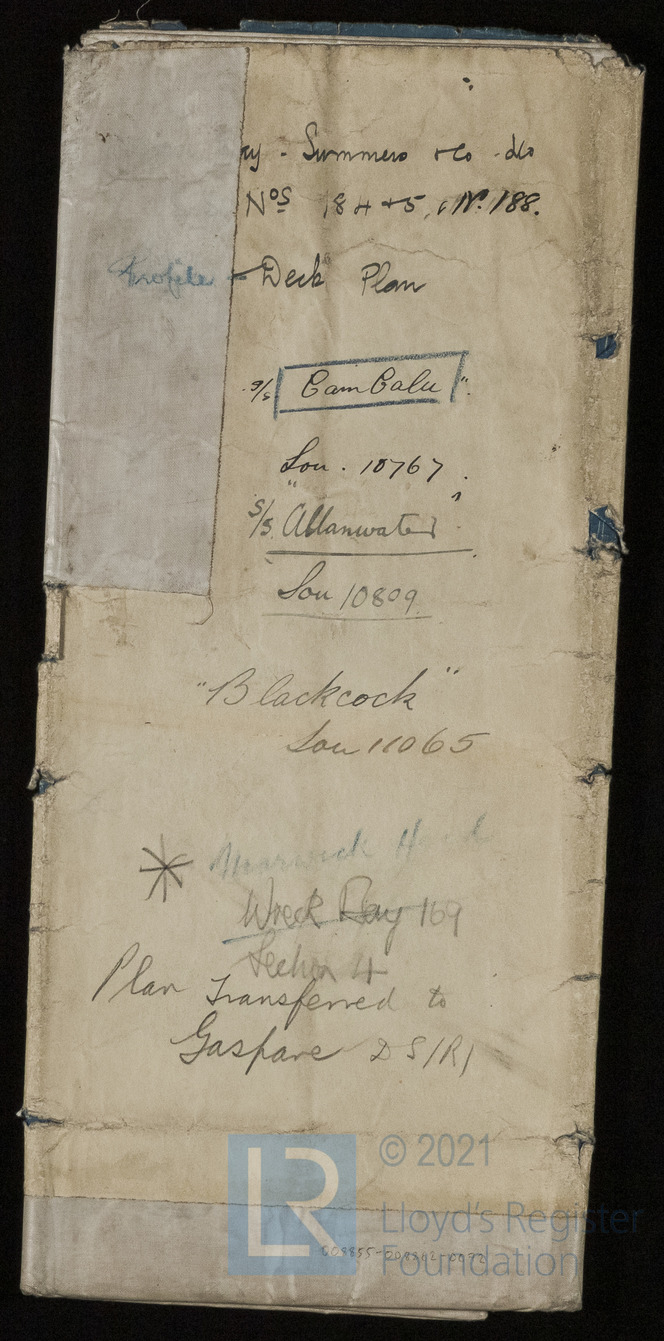 ay - Summers & Co - do
Nos 184 & 5, & No. 188.
Profile & Deck Plan
s/s "CamBalu".
Lou. 10767.
s/s "Allanwater"
Lou 10809.
"Blackcock"
Lou 11065
Wreck Bay 169
Section 4
Plan Transferred to
Gaspare DS/R/
LR
© 2021
Lloyd's Register
Foundation